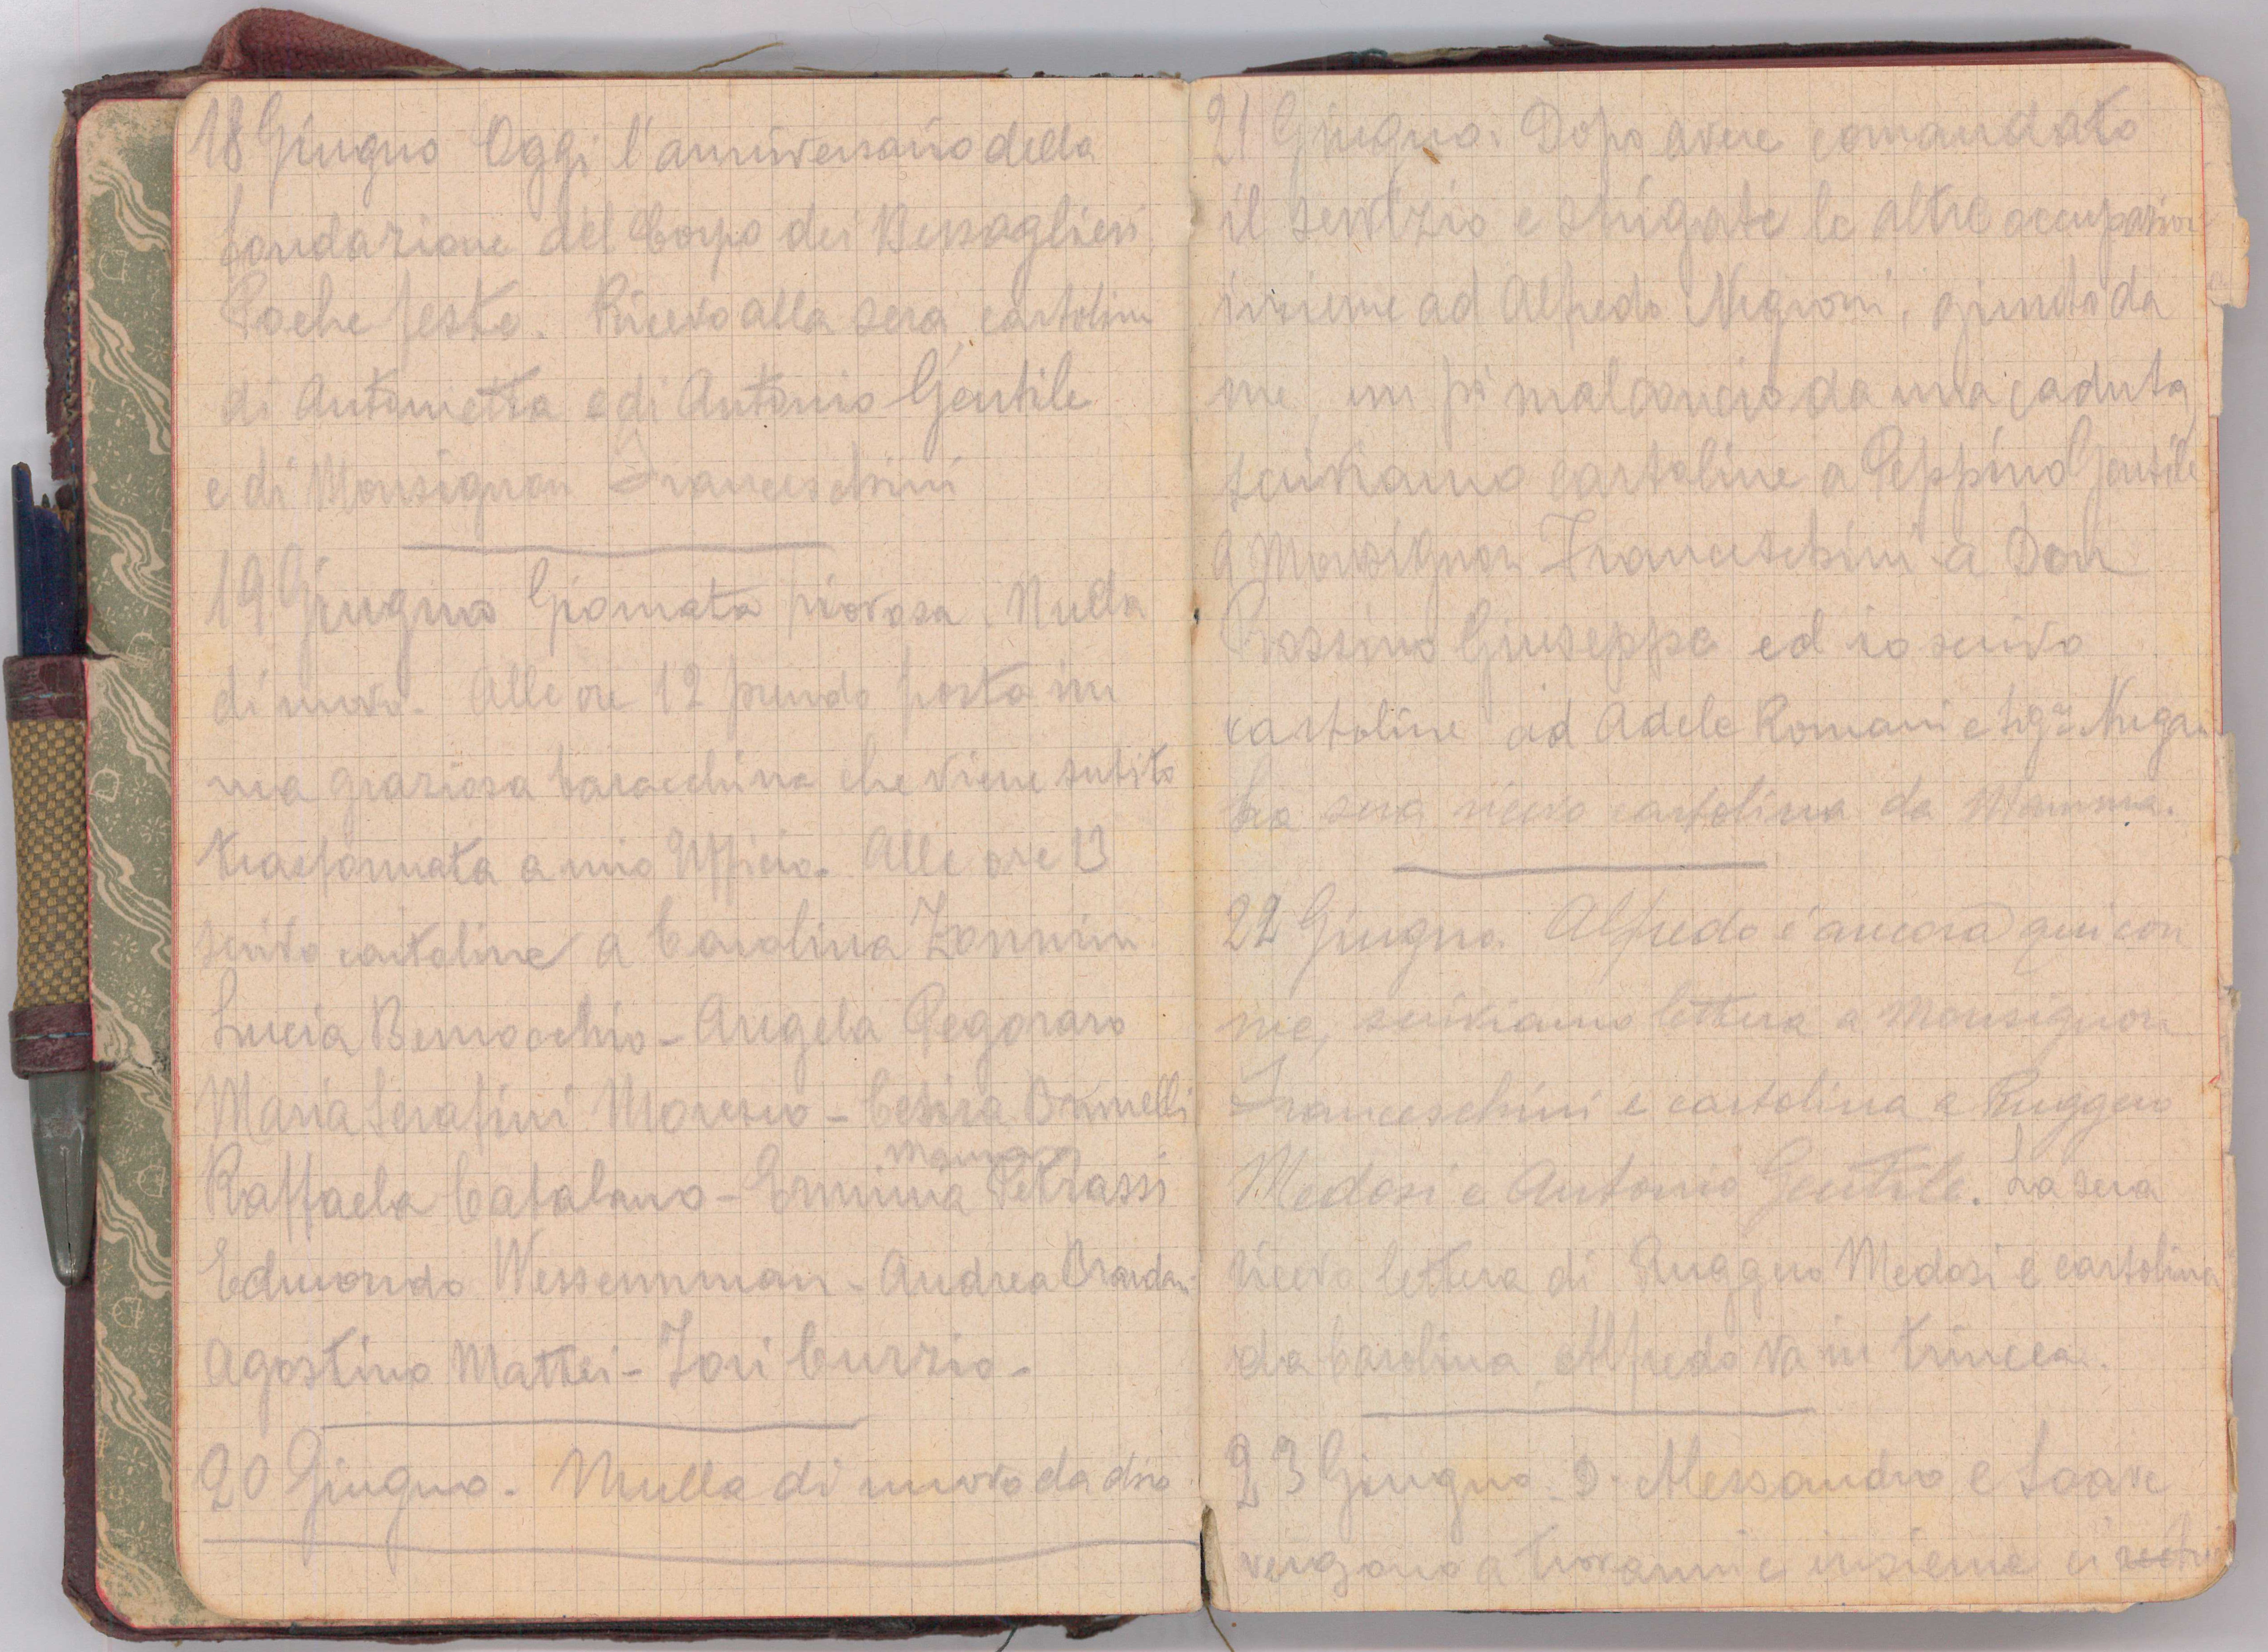 18 Giugno Oggi l'anniversario della
fondazione del Corpo dei Bersaglieri.
Poche feste. Ricevo alla sera cartolina
di Antonietta e di Antonio Gentile
e di Monsignor Franceschini
19 Giugno Giornata piovosa. Nulla
di nuovo. Alle ore 12 prendo posto in
una graziosa baracchina che viene subito
trasformata a mio Ufficio. Alle ore 13
scrivo cartoline a Carolina Zannini
Lucia - Angela Pegoraro
Maria Serafini - Cesira Brunelli
Mauro
Raffaela Catalano - Erminia Petrassi
Edmondo Wessermman - Andrea
Agostino Mattei - Tori Curzio -
20 Giugno. Nulla di nuovo da dire
21 Giugno. Dopo avere comandato
il servizio e sbrigate le altre occupazioni
insieme ad Alfredo Negroni, giunto da
me, un pò malconcio da una caduta,
scriviamo cartoline a Peppino Gentile
a Monsignor Franceschini a Don
Giuseppe ed io scrivo
cartoline ad Adele Romani e
La sera ricevo cartolina da Mamma.
22 Giugno. Alfredo è ancora qui con
me, scriviamo lettera a Monsignor
Franceschini e cartolina a Ruggero
Medosi e Antonio Gentile. La sera
ricevo lettera di Ruggero Medosi e cartolina
da Carolina. Alfredo va in trincea.
23 Giugno. D. Alessandro e Soave
vengono a trovarmi e insieme ci